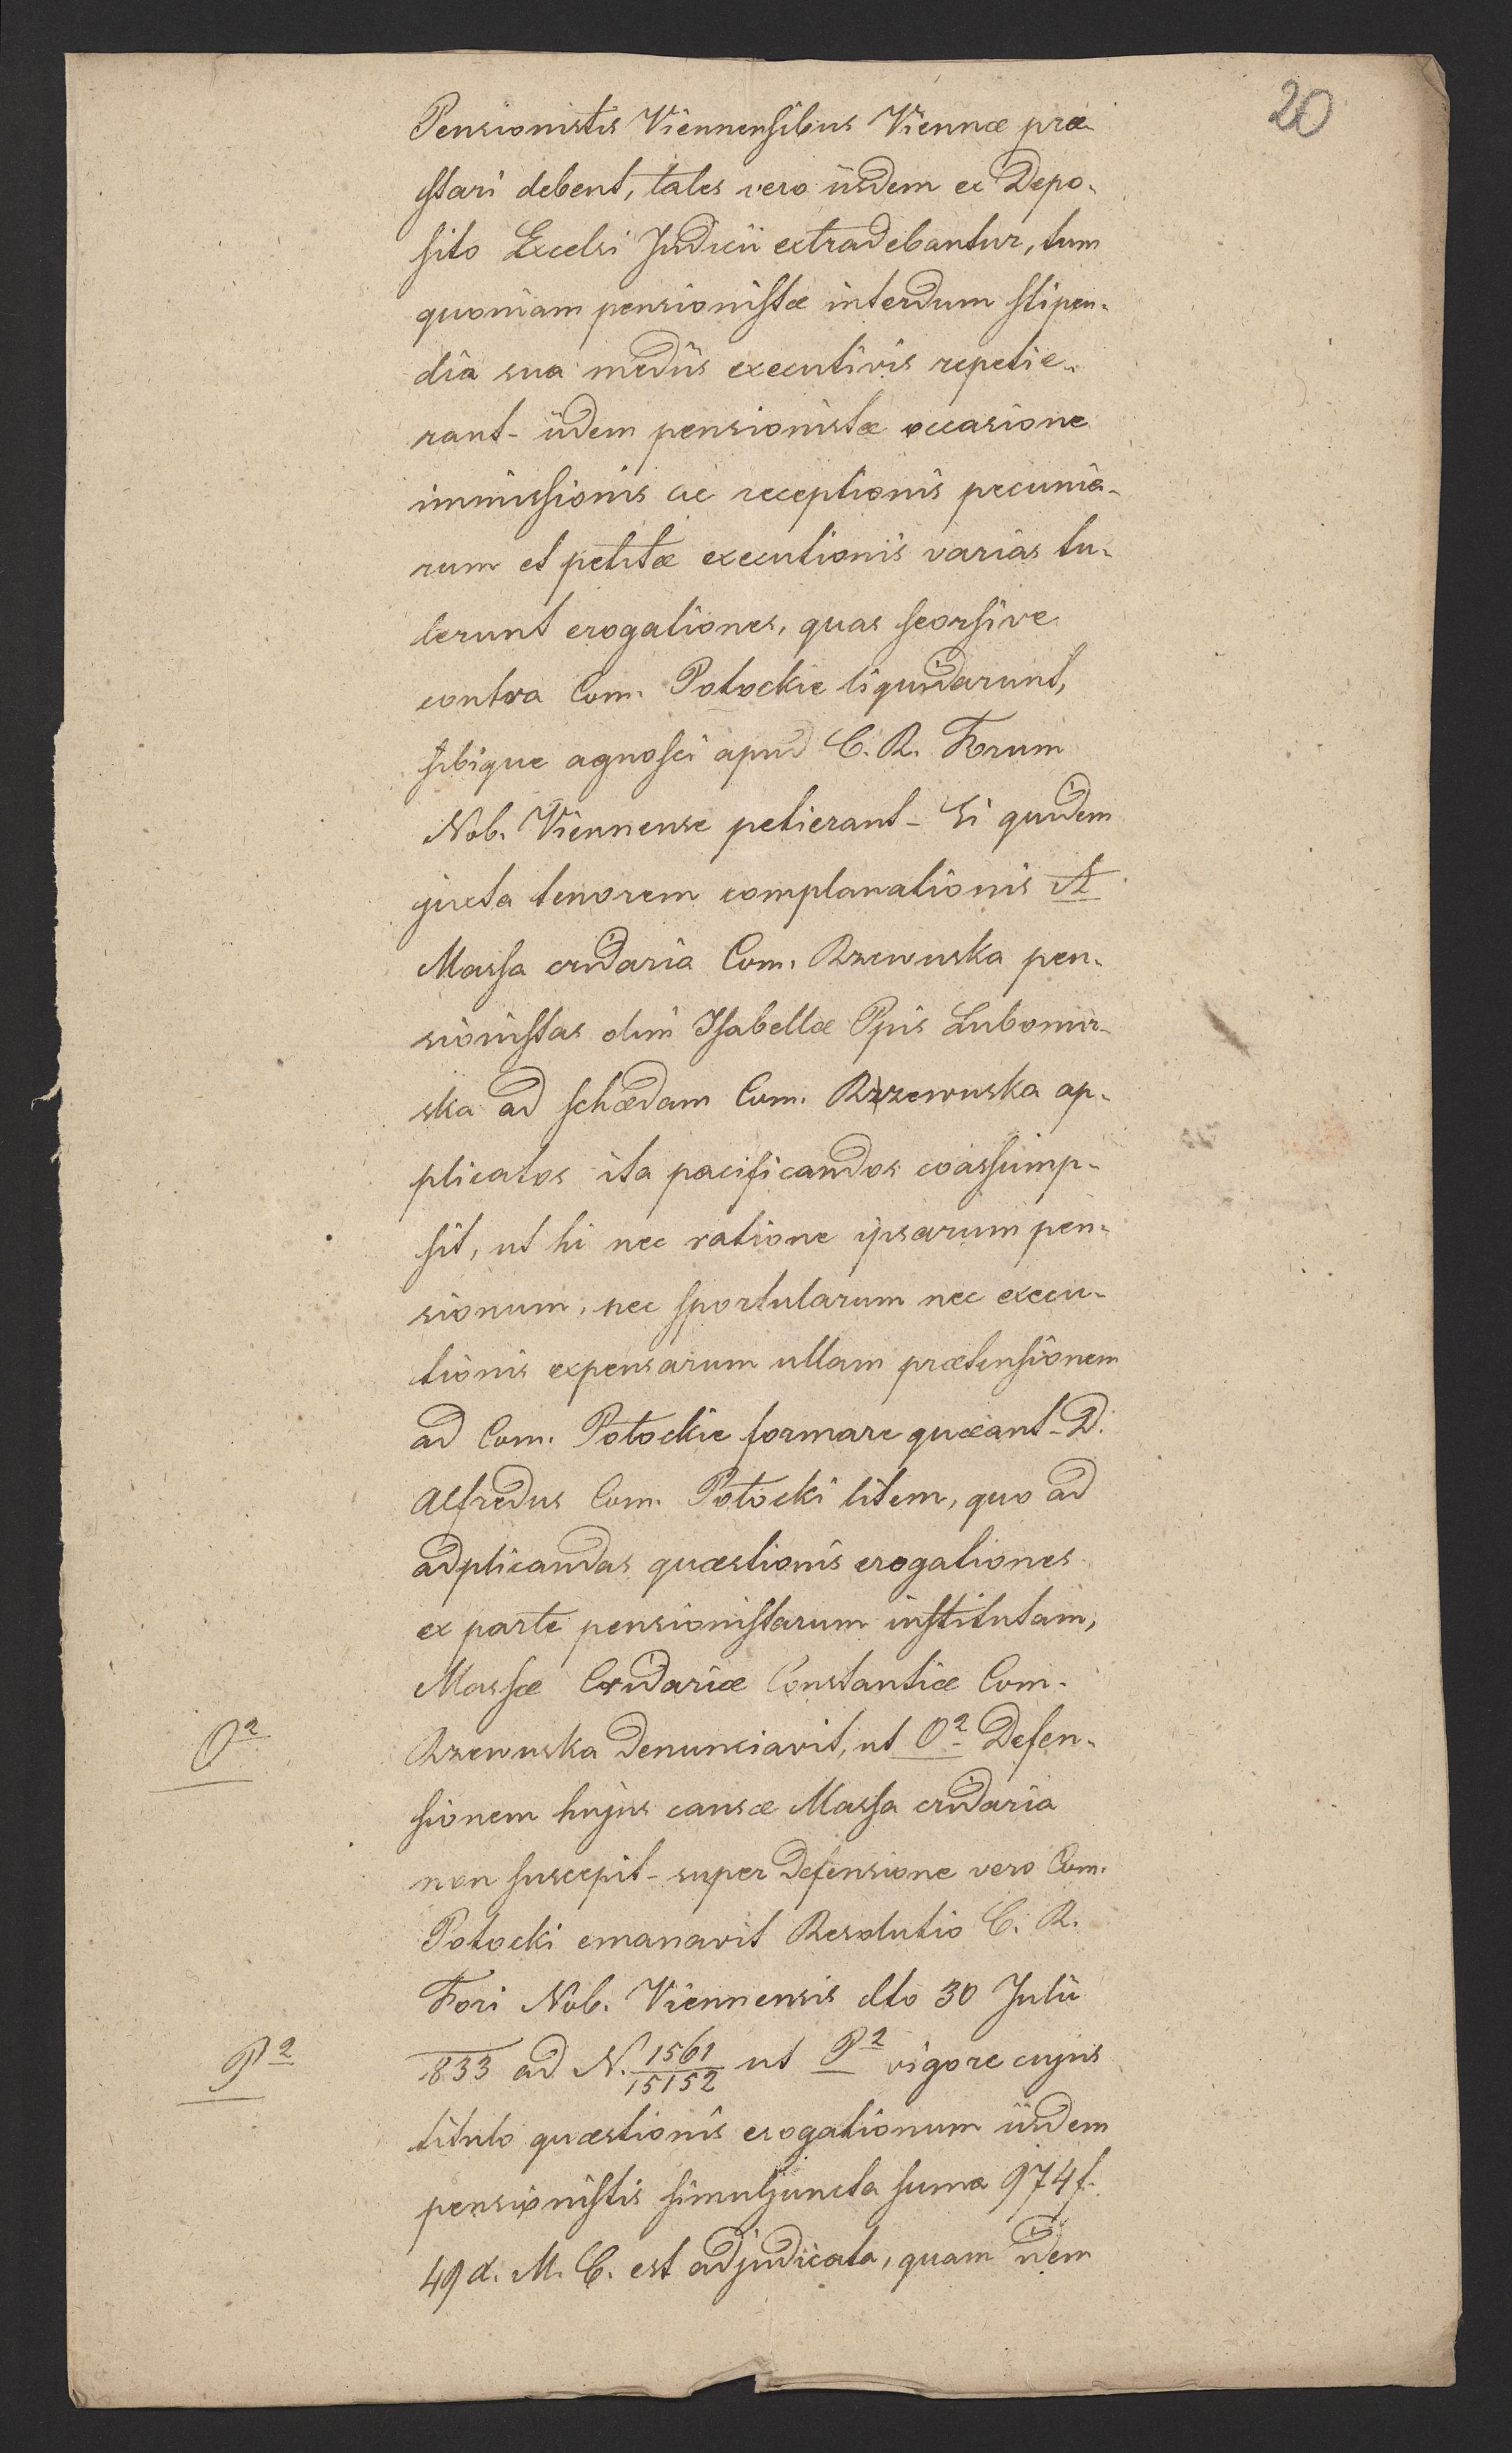 20
Pensionistis Viennensibus Viennæ præ
stari debent, tales vero iisdem ex Depo-
sito Excelsi Judicii extradebantur, tum
quoniam pensionistæ interdum stipen-
dia sua mediis executivis repetie-
rant - iidem pensionistæ occasione
immissionis ac receptionis pecunia-
rum et petitæ executionis varias tu-
lerunt erogationes, quas seorsive
contra Com. Potockie liquidarunt,
sibique agnosci apud C. R. Forum
Nob. Viennense petierant - Si quidem
juxta tenorem complanationis A
Massa cridaria Com. Rzewuska pen-
sionistas olim Isabellæ Ppis Lubomir-
ska ad schedam Com. Rzewuska ap-
plicatos ita pacificandos coassump-
sit, ut hi nec ratione ipsarum pen-
sionum, nec sportularum nec execu-
tionis expensarum ullam prætensionem
ad Com. Potockie formare queant - D.
Alfredus Com. Potocki litem, quo ad
adplicandas quæstionis erogationes
ex parte pensionistarum institutam,
Massæ Cridariæ Constantiæ Com.
O² Rzewuska denunciavit, ut O² Defen-
sionem hujus causæ Massa cridaria
non suscepit - super defensione vero Com.
Potocki emanavit Resolutio C. R.
Fori Nob. Viennensis dto 30 Julii
P² 833 ad N. 1561/15152 ut P² vigore cujus
titulo quæstionis erogationum iisdem
pensionistis simuljuncta suma 974 f.
49 x. M. C. est adjudicata, quam iidem